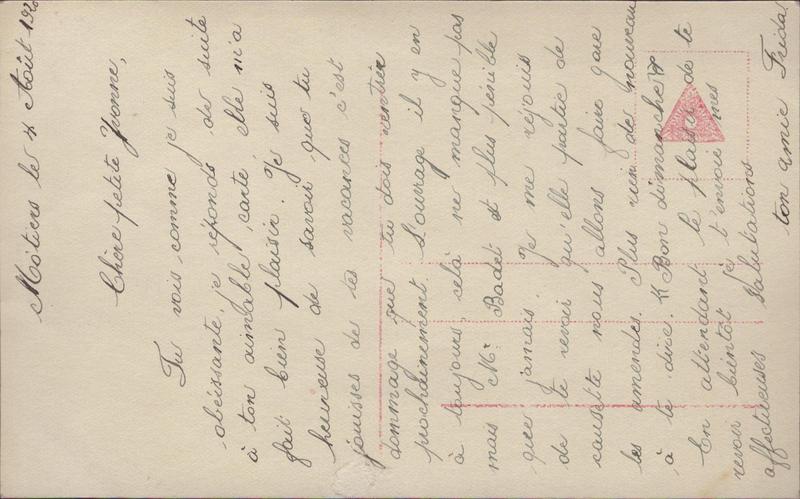 Môtiers le 4 Août 1920
Chère petite Yvonne,
Tu vois comme je suis
obéissante, je réponds de suite
à ton aimable carte elle m'a
fait bien plaisir. Je suis
heureuse de savoir que tu
jouisses de tes vacances c'est
dommage que tu dois rentrer
prochainement. L'ouvrage il y en
à toujours, celà ne manque pas
mais Mr. Badet est plus pénible
que jamais. Je me réjouis
de te revoir qu'elle partie de
causette nous allons faire gare
les amendes. Plus rien de nouveau
à te dire. "Bon dimanche"
En attendant le plaisir de te
revoir bientôt je t'envoie mes
affectueuses salutations
ton amie Frida.